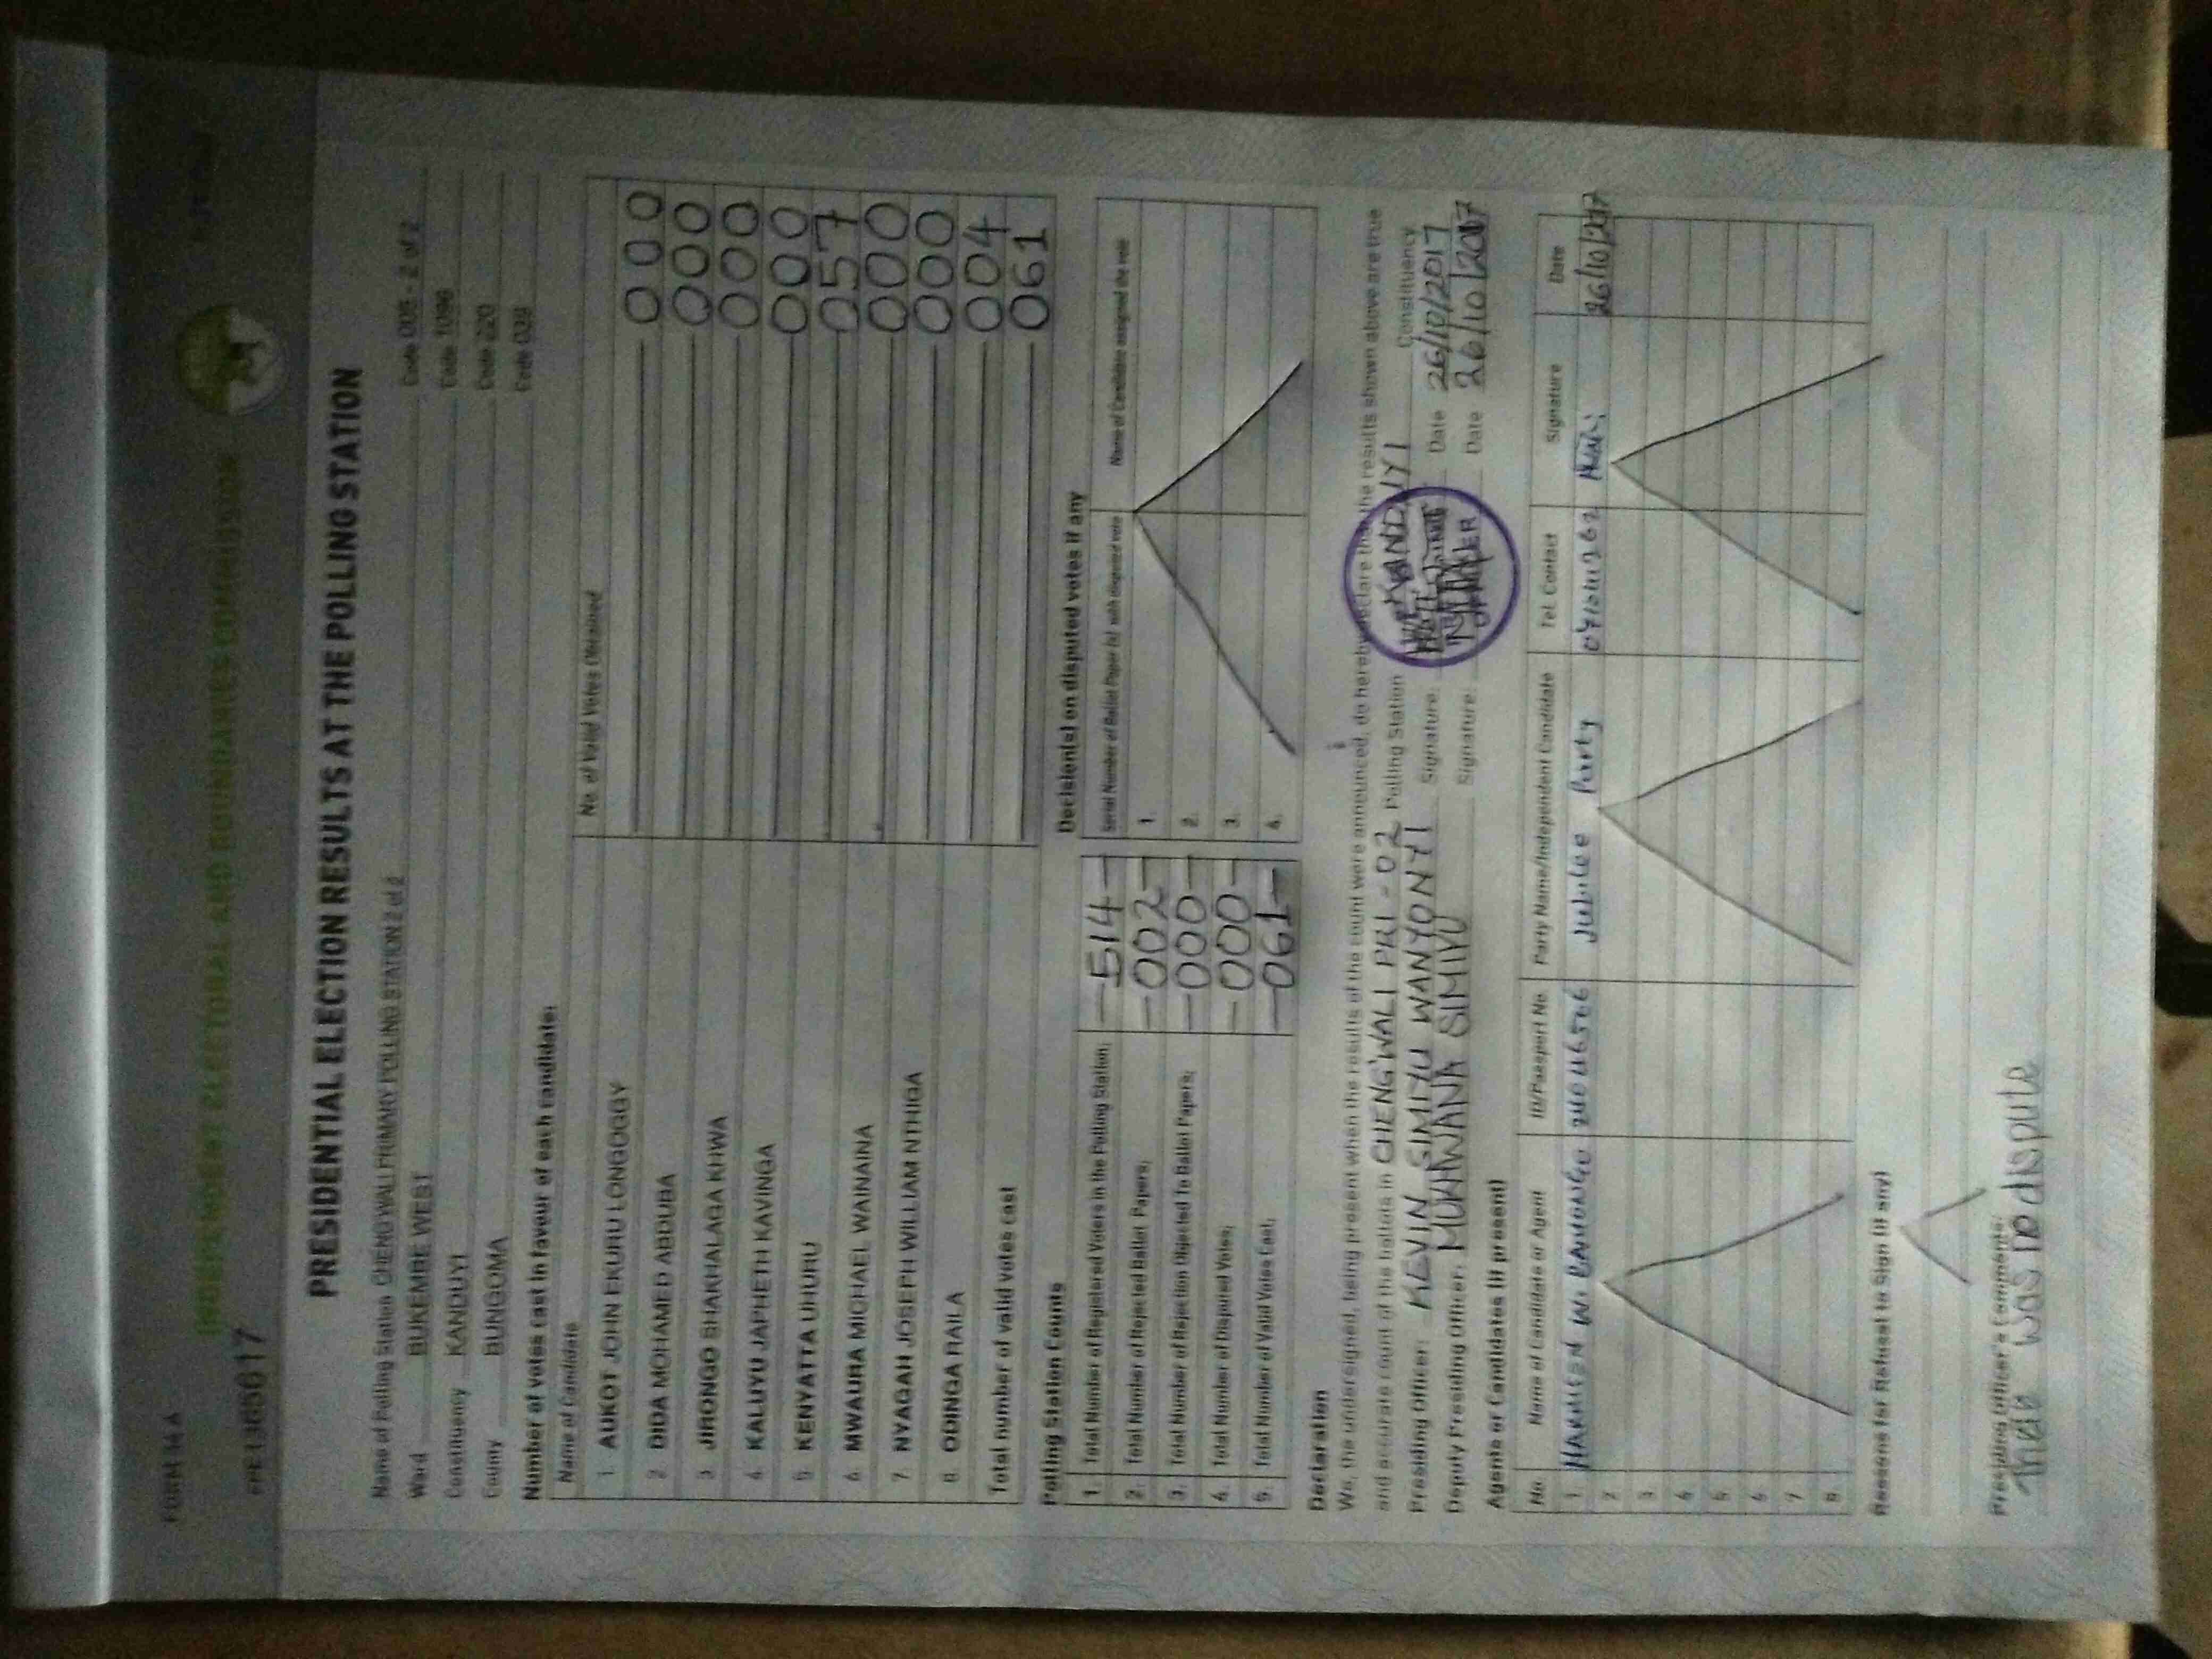 FORM 34 A
INDEPENDENT ELECTORAL AND BOUNDARIES COMMISSION
PRESIDENTIAL ELECTION RESULTS AT THE POLLING STATION
Name of Polling Station CHENG'WALI PRIMARY POLLING STATION 2 of 2 Code 005 - 2 of 2
Ward BUKEMBE WEST Code 1096
Constituency KANDUYI Code 220
County BUNGOMA Code 039
Number of votes cast in favour of each candidate:
Name of Candidate No. of Valid Votes Obtained
1. AUKOT JOHN EKURU LONGOGGY 000
2. DIDA MOHAMED ABDUBA 000
3. JIRONGO SHAKHALAGA KHWA 000
4. KALUYU JAPHETH KAVINGA 000
5. KENYATTA UHURU 057
6. MWAURA MICHAEL WAINAINA 000
7. NYAGAH JOSEPH WILLIAM NTHIGA 000
8. ODINGA RAILA 004
Total number of valid votes cast 061
Polling Station Counts
1. Total Number of Registered Voters in the Polling Station; 514
2. Total Number of Rejected Ballot Papers; 002
3. Total Number of Rejection Objected To Ballot Papers; 000
4. Total Number of Disputed Votes; 000
5. Total Number of Valid Votes Cast; 061
Decision(s) on disputed votes if any
Serial Number of Ballot Paper (s) with disputed vote Name of Candidate assigned the vote
1.
2.
3.
4.
Declaration
We, the undersigned, being present when the results of the count were announced, do hereby declare that the results shown above are true
and accurate count of the ballots in CHENG'WALI PRI - 02 Polling Station KANDUYI Constituency
Presiding Officer: KEVIN SIMIYU WANYONYI Signature: Date 26/10/2017
Deputy Presiding Officer: MUKHWANA SIMIYU Signature: Date 26/10/2017
Agents or Candidates (if present)
No Name of Candidate or Agent ID/Passport No Party Name/Independent Candidate Tel. Contact Signature Date
1. Jubilee Party 26/10/2017
2
3
4
5
6
7
8
Reasons for Refusal to Sign (if any)
Presiding Officer's Comments:
Thde was no dispute